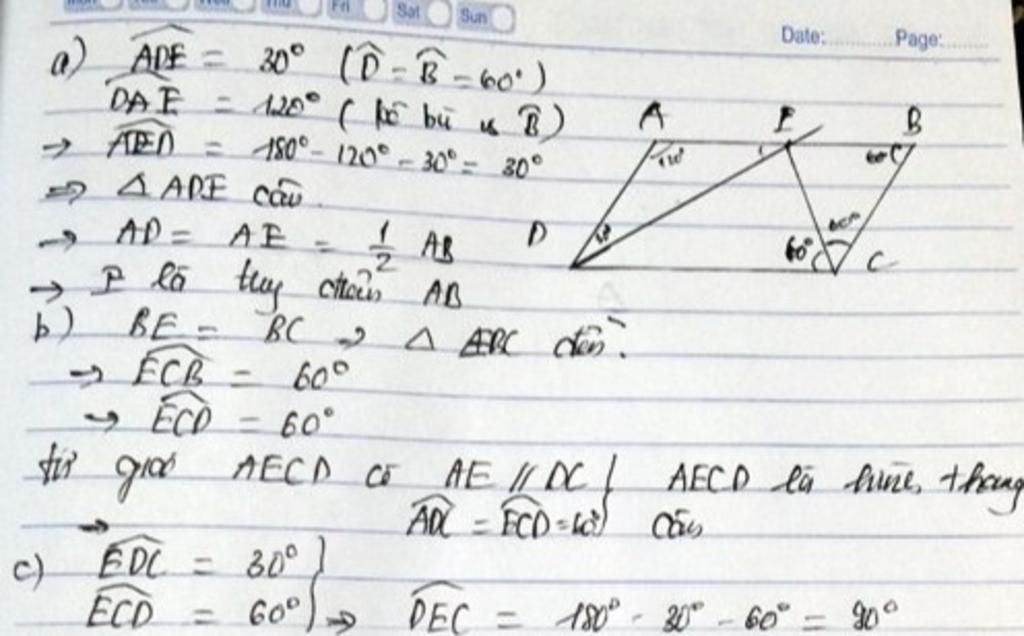 Fri Sat Sun
Date: Page:
a) ADE = 30° (D = B = 60°)
DAE = 120° ( kề bù B)
→ AED = 180° - 120° - 30° = 30°
⇒ △ ADE cân
→ AD = AE = 1/2 AB
→ E là AB
b) BE = BC → △ EBC đều.
→ ECB = 60°
→ ECD = 60°
tứ giác AECD có AE // DC } AECD là hình thang
→ ADC = ECD = 60° cân
c) EDC = 30° }
ECD = 60° } → DEC = 180° - 30° - 60° = 90°
A E B
120° 60°
D 60° 60° C